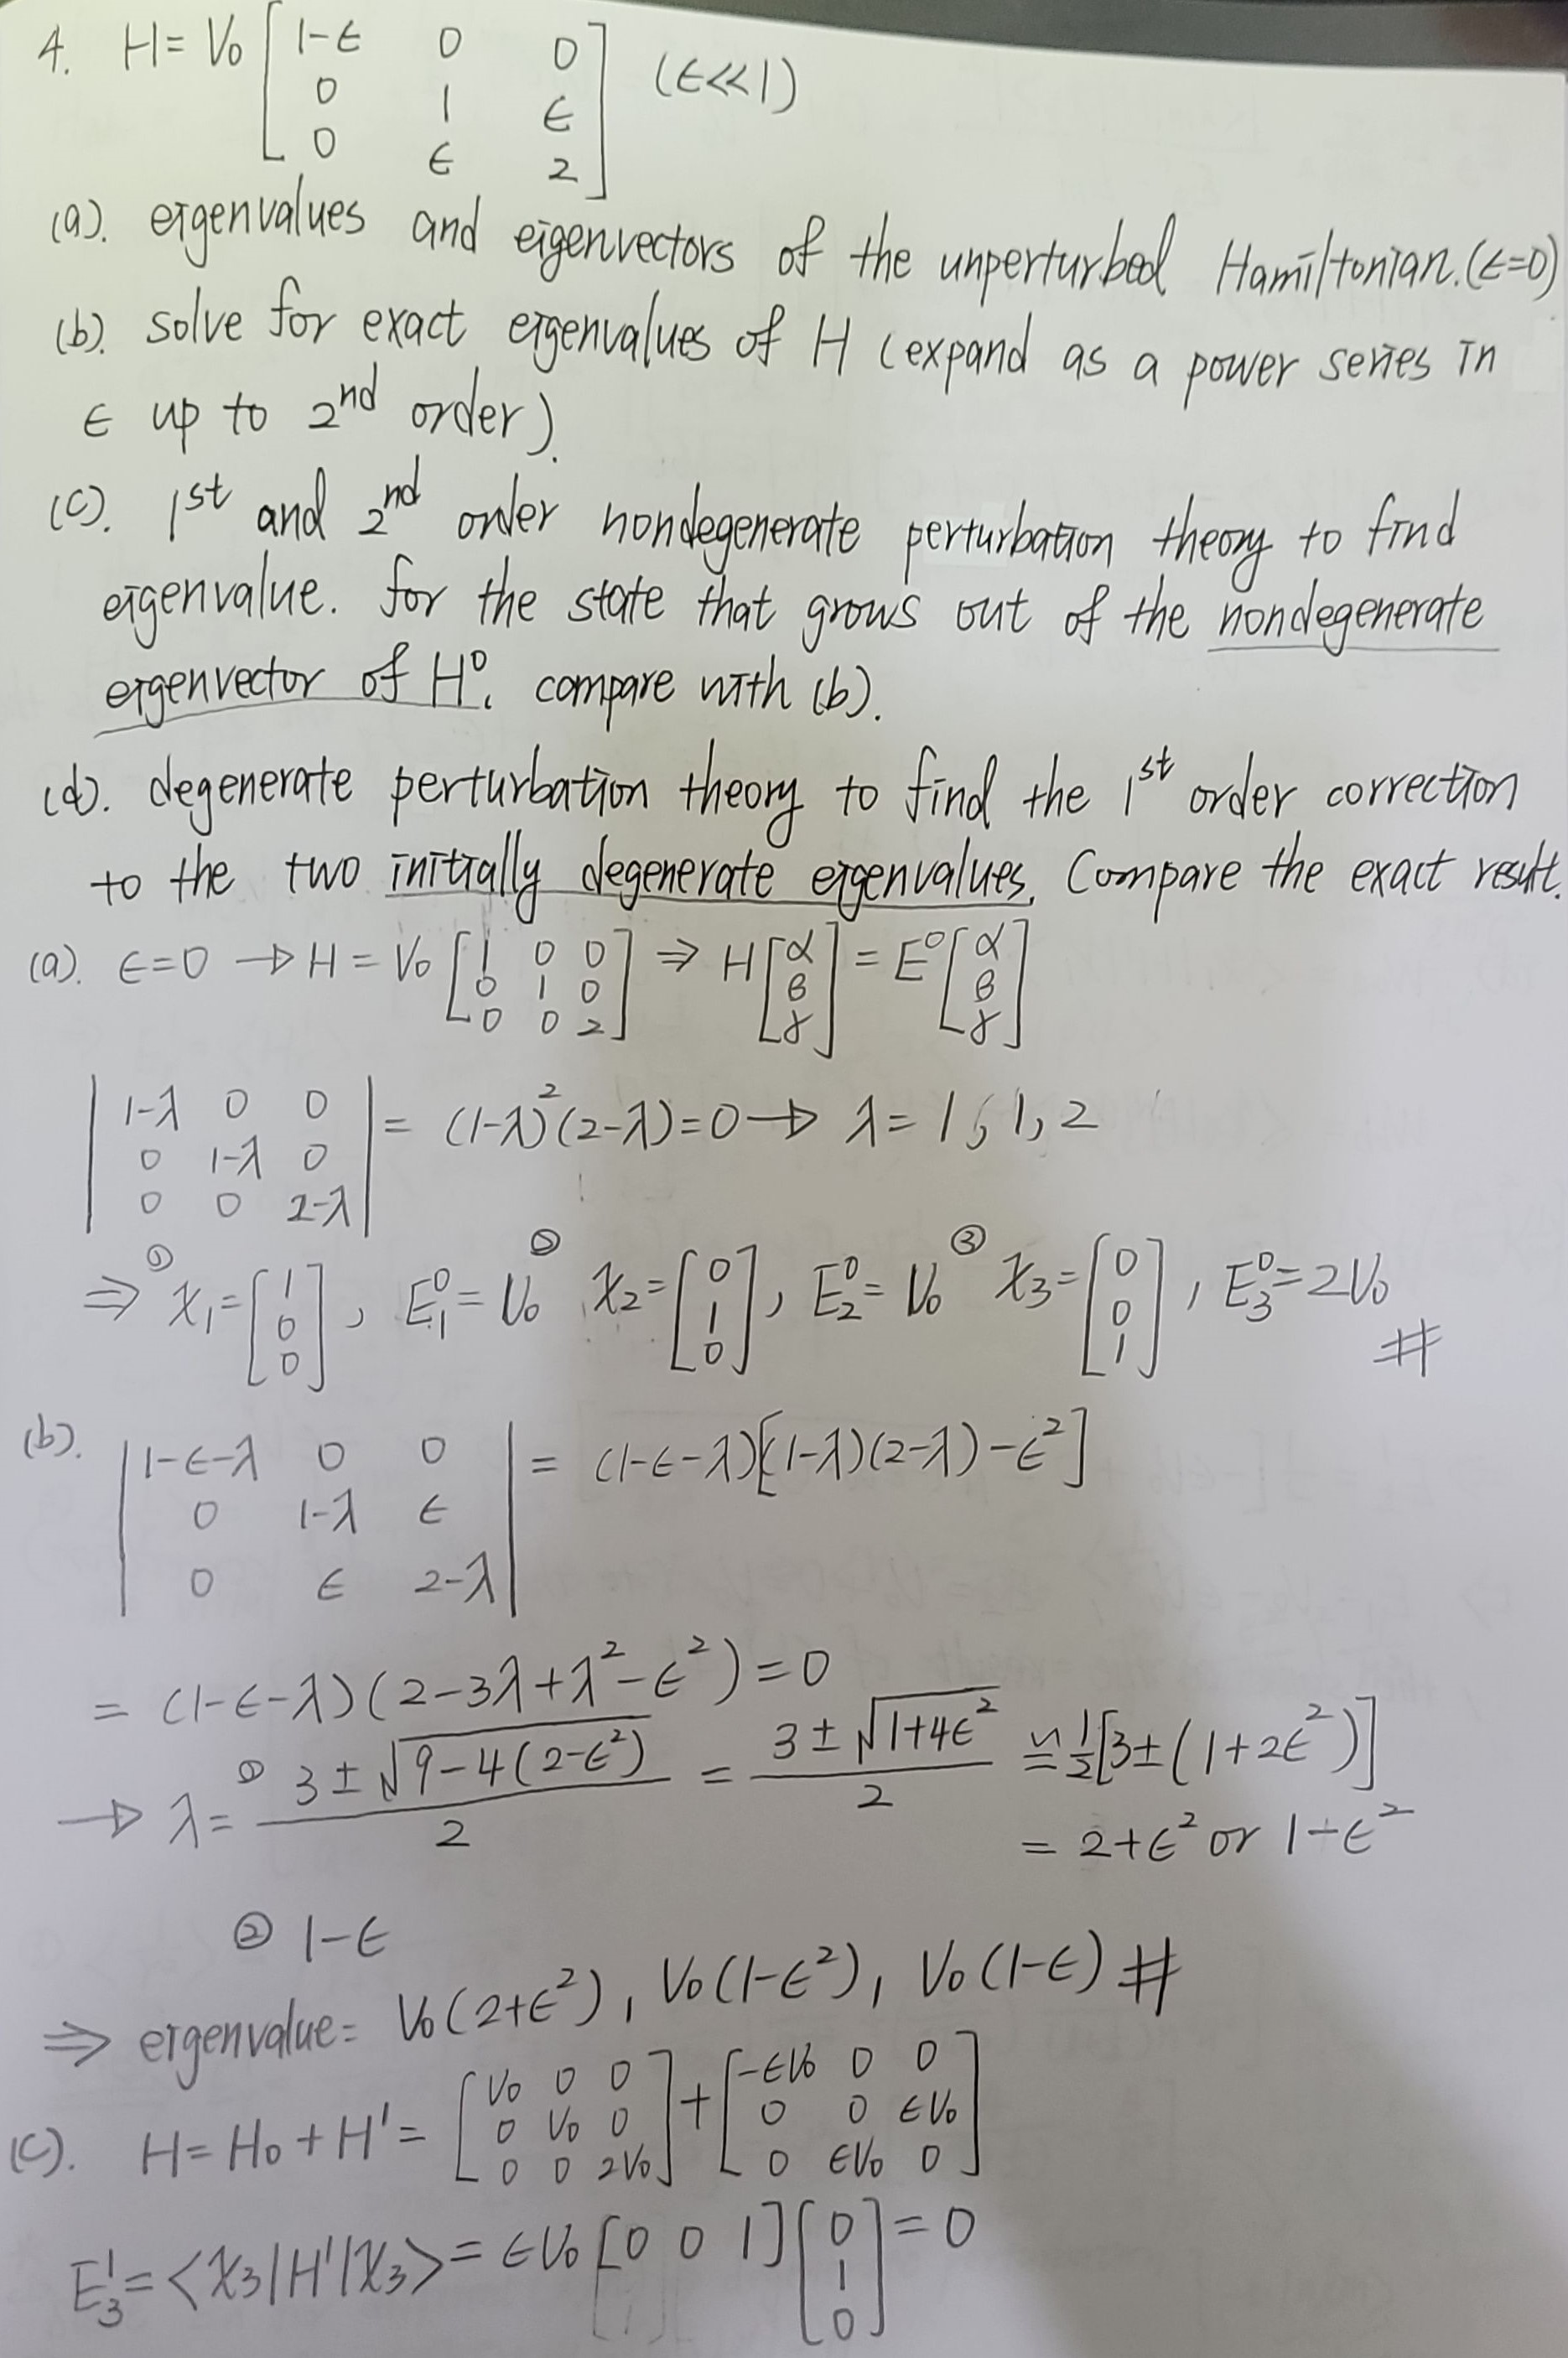 4. H = V₀ [1-ϵ 0 0; 0 1 ϵ; 0 ϵ 2] (ϵ<<1)
(a). eigenvalues and eigenvectors of the unperturbed Hamiltonian. (ϵ=0)
(b). solve for exact eigenvalues of H (expand as a power series in
ϵ up to 2nd order).
(c). 1st and 2nd order nondegenerate perturbation theory to find
eigenvalue. for the state that grows out of the nondegenerate
eigenvector of H⁰. compare with (b).
(d). degenerate perturbation theory to find the 1st order correction
to the two initially degenerate eigenvalues. Compare the exact result.
(a). ϵ=0 → H = V₀ [1 0 0; 0 1 0; 0 0 2] ⇒ H [α; β; γ] = E⁰ [α; β; γ]
|1-λ 0 0; 0 1-λ 0; 0 0 2-λ| = (1-λ)²(2-λ)=0 → λ = 1, 1, 2
⇒ ① χ₁ = [1; 0; 0], E₁⁰ = V₀ ② χ₂ = [0; 1; 0], E₂⁰ = V₀ ③ χ₃ = [0; 0; 1], E₃⁰ = 2V₀ #
(b). |1-ϵ-λ 0 0; 0 1-λ ϵ; 0 ϵ 2-λ| = (1-ϵ-λ)[(1-λ)(2-λ)-ϵ²]
= (1-ϵ-λ)(2-3λ+λ²-ϵ²) = 0
→ λ = ① (3±√(9-4(2-ϵ²)))/2 = (3±√(1+4ϵ²))/2 ≅ ½[3±(1+2ϵ²)]
= 2+ϵ² or 1-ϵ²
② 1-ϵ
⇒ eigenvalue = V₀(2+ϵ²), V₀(1-ϵ²), V₀(1-ϵ) #
(c). H = H₀ + H' = [V₀ 0 0; 0 V₀ 0; 0 0 2V₀] + [-ϵV₀ 0 0; 0 0 ϵV₀; 0 ϵV₀ 0]
E₃¹ = <χ₃|H'|χ₃> = ϵV₀ [0 0 1] [0; 1; 0] = 0